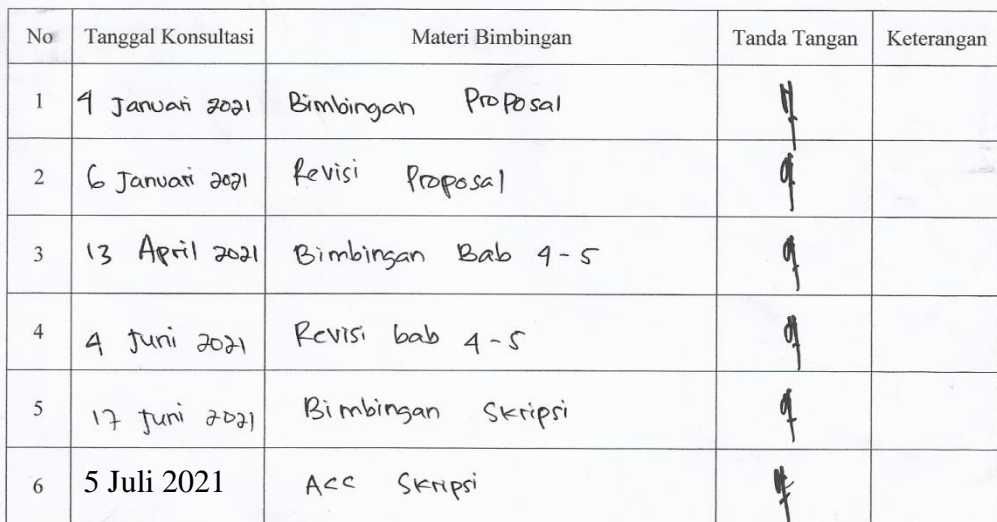 No Tanggal Konsultasi Materi Bimbingan Tanda Tangan Keterangan
1 4 Januari 2021 Bimbingan Proposal
2 6 Januari 2021 Revisi Proposal
3 13 April 2021 Bimbingan Bab 4-5
4 4 Juni 2021 Revisi bab 4-5
5 17 Juni 2021 Bimbingan Skripsi
6 5 Juli 2021 Acc Skripsi